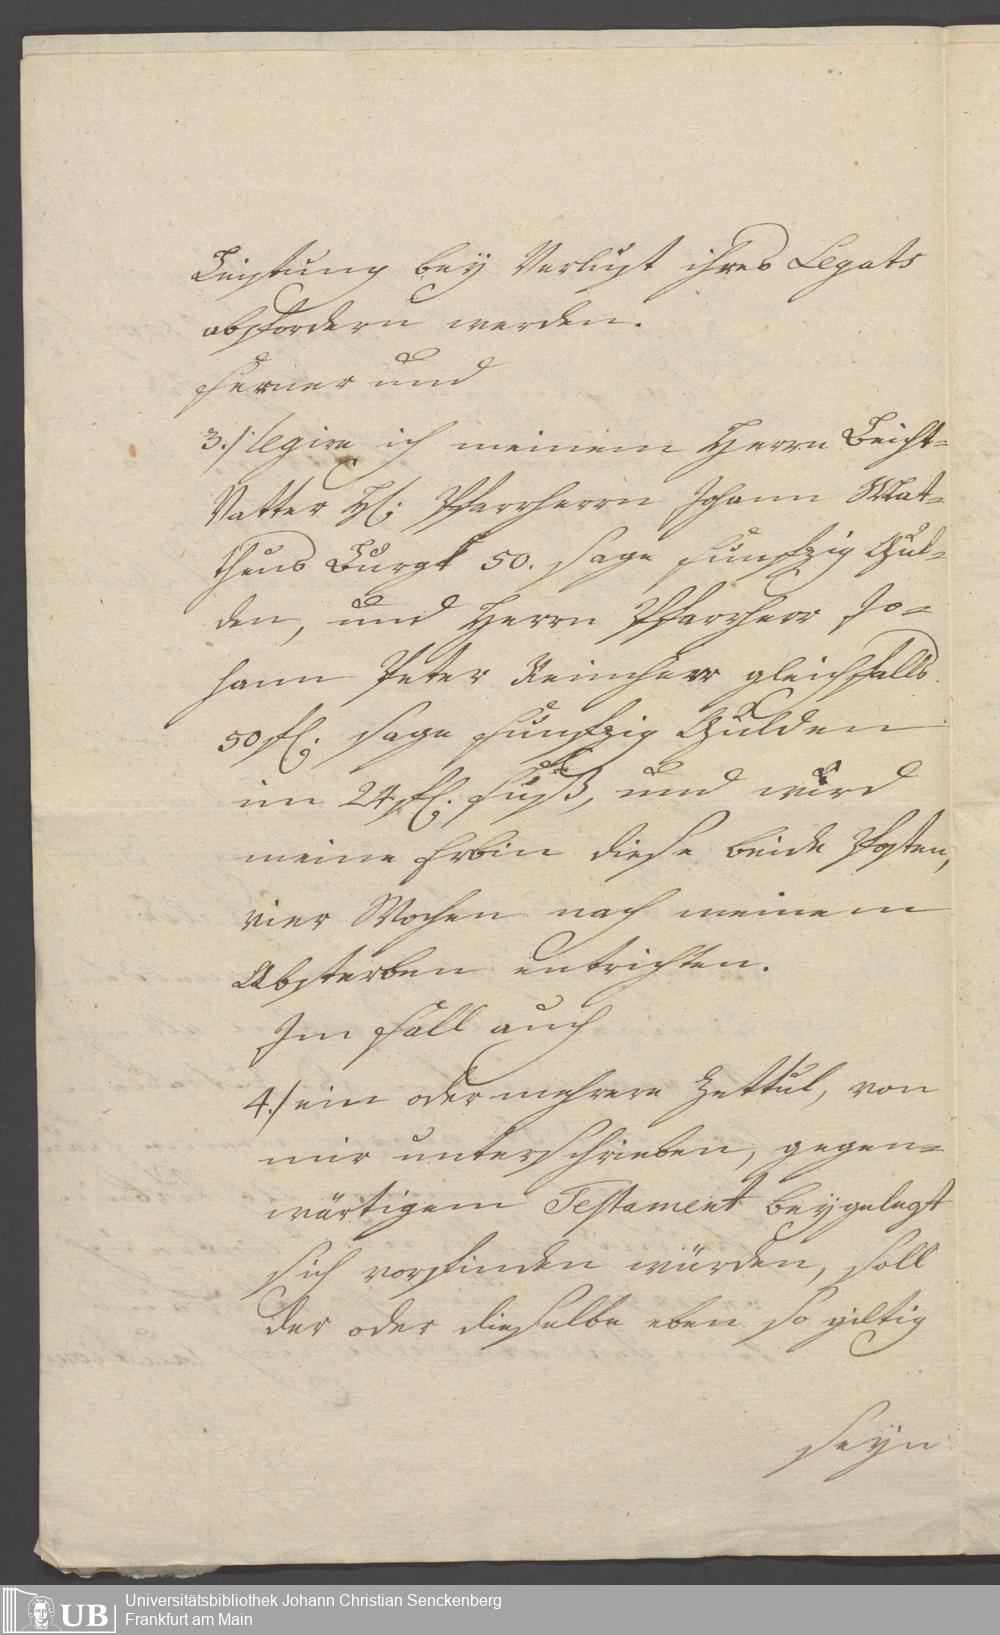 Leistung bey Verlust ihres Legats
abfordern werden.
Ferner und
3./ legire ich meinem Herrn Beicht-
Vatter H: Pfarrherrn Johann Mat-
theus Burgk 50. sage funfzig Gul-
den, und Herrn Pfarrherr Jo-
hann Peter Reinherr gleichfalls
50 fl: sage funfzig Gulden
im 24 fl. Fuß, und wird
meine Erbin diese beide Posten,
vier Wochen nach meinem
Absterben entrichten.
Im Fall auch
4./ ein oder mehrere Zettul, von
mir unterschrieben, gegen-
wärtigem Testament beygelegt
sich vorfinden würden, soll
der oder dieselbe eben so giltig
seyn
UB Universitätsbibliothek Johann Christian Senckenberg
Frankfurt am Main